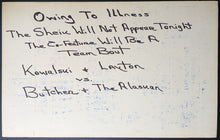 Owing To Illness
The Sheik Will Not Appear Tonight
The Co-Feature Will Be A
Team Bout
Kowalski & Layton
vs.
Butcher & The Alaskan